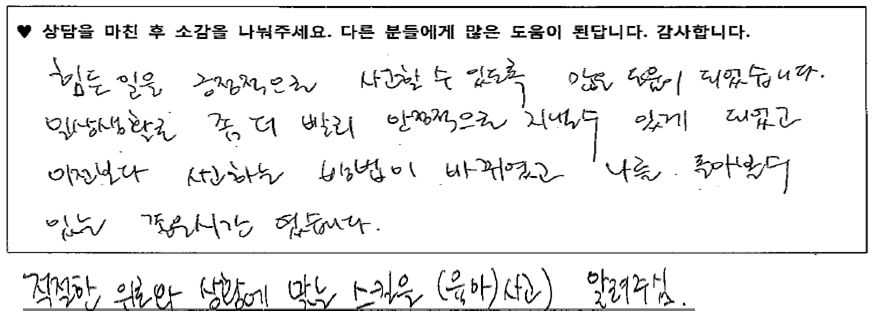 ♥ 상담을 마친 후 소감을 나눠주세요. 다른 분들에게 많은 도움이 된답니다. 감사합니다.
힘든 일을 긍정적으로 사고할 수 있도록 많은 도움이 되었습니다.
일상생활로 좀 더 빨리 안정적으로 지낼 수 있게 되었고
이전보다 사고하는 방법이 바뀌었고 나를 돌아볼 수
있는 좋은 시간 였습니다.
적절한 위로와 상황에 맞는 스킬을 (육아) 사고) 알려주심.